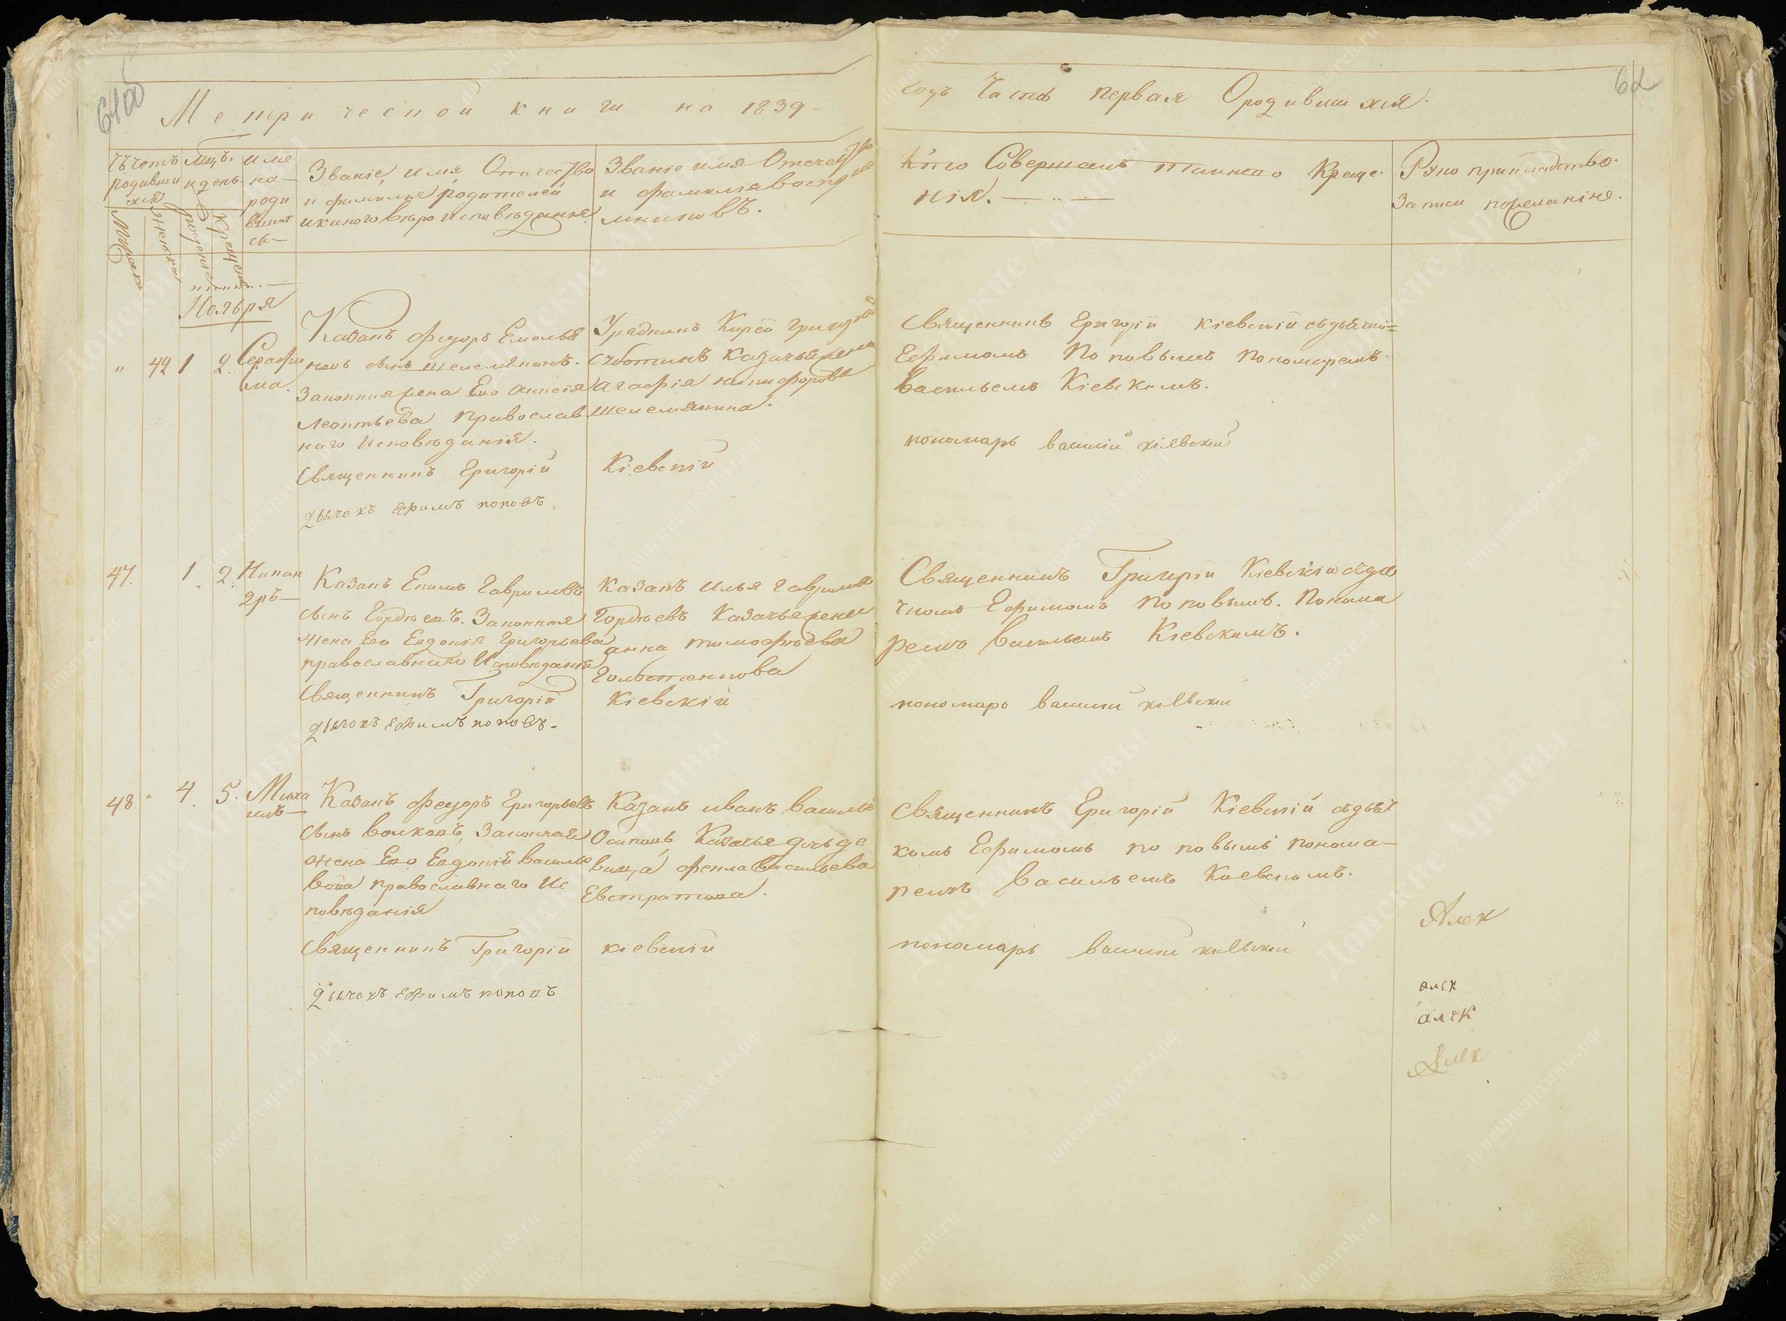 Метрической книги на 1839
годъ Часть первая О родившихся.
62
Счетъ родившихся
Мужеска
Женска
Мцъ и день
рожденія
крещенія
Имена родившихсь
Званіе, имя, Отчество
и фамилие родителей
и какого веро исповѣданія.
Званіе имя Отчество
и фамилія воспріе
мниковъ.
Кто Совершалъ таинство Креще
нія.
Руко прикладство
Записи по желаніяе.
Ноября
" 42 1 2. Серафи
ма.
Казакъ Федоръ Емелья
новъ сынъ Шелемянинъ.
Законная жена Его Аксенія
Леонтьева православ
наго Исповѣданія.
Священникъ Григорій
дьячокъ Ефимъ поповъ.
Урядникъ Кирей Григорьев
Суботинъ Казачья жена
Агафія Никифорова
Шелемянина.
Кіевскій
Священникъ Григорій Кіевскій съ дьячко=
Ефимомъ Поповымъ пономаремъ
Васильемъ Кіевскимъ.
пономарь василий кіевскій
47. 1. 2. Никан
дръ
Казакъ Екимъ Гавриловъ
сынъ Гордѣевъ. Законная
жена Его Евдокія Григорьева
православнаго Исповѣданія
Священникъ Григорій
дьячокъ Ефимъ поповъ.
Казакъ Илья Гаврилов
Гордѣевъ Казачья жена
анна тимофѣева
Кіевскій
Священникъ Григорій Кіевскій съ дья
чкомъ Ефимомъ Поповымъ. Понома
ремъ Васильемъ Кіевскимъ.
пономарь василий кіевскій
48 " 4. 5. Миха
илъ
Казакъ Федоръ Григорьевъ
сынъ Волковъ, Законная
жена Его Евдокія Василье
вна православнаго Ис
повѣданія
Священникъ Григорій
дьячокъ Ефимъ поповъ
Казакъ иванъ василье
Осиповъ Казачья дочь де
вица фекла Васильева
Евстратова.
кіевскій
Священникъ Григорій Кіевскій съ дьяч
комъ Ефимомъ поповымъ понома-
ремъ Васильемъ Киевскимъ.
пономарь василий кіевскій
Алек
алек
алек
Алек